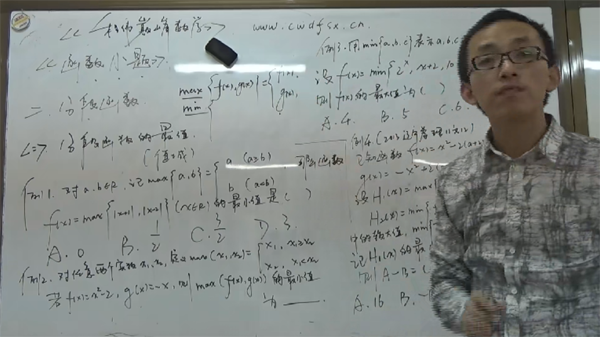 www.cwdfsx.cn
<<函数小题>>
二、分段函数
max
min
{f(x),g(x)}={f(x),
g(x),
<二> 分段函数的最值
例1. 对a、b∈R,记max{a,b}={a (a≥b)
b (a<b)
函数
f(x)=max{|x+1|,|x-2|}(x∈R)的最小值是( )
A. 0 B. 1/2 C. 3/2 D. 3
例2. 对任意两个实数x₁,x₂, max(x₁,x₂)={x₁, x₁≥x₂
x₂, x₁<x₂
若f(x)=x²-2, g(x)=-x,则max(f(x),g(x))的最小值
为
例3. 用min{a,b,c}表示a,b,c
设f(x)=min{2ˣ, x+2, 10
则f(x)的最大值为( )
A. 4 B. 5 C. 6
例4.
已知函数f(x)=x²-2(a+2
g(x)=-x²+2(
设H₁(x)=max{
H₂(x)=min{
中的较大值, min{
记H₁(x)的最
则A-B=(
A. 16 B. -1